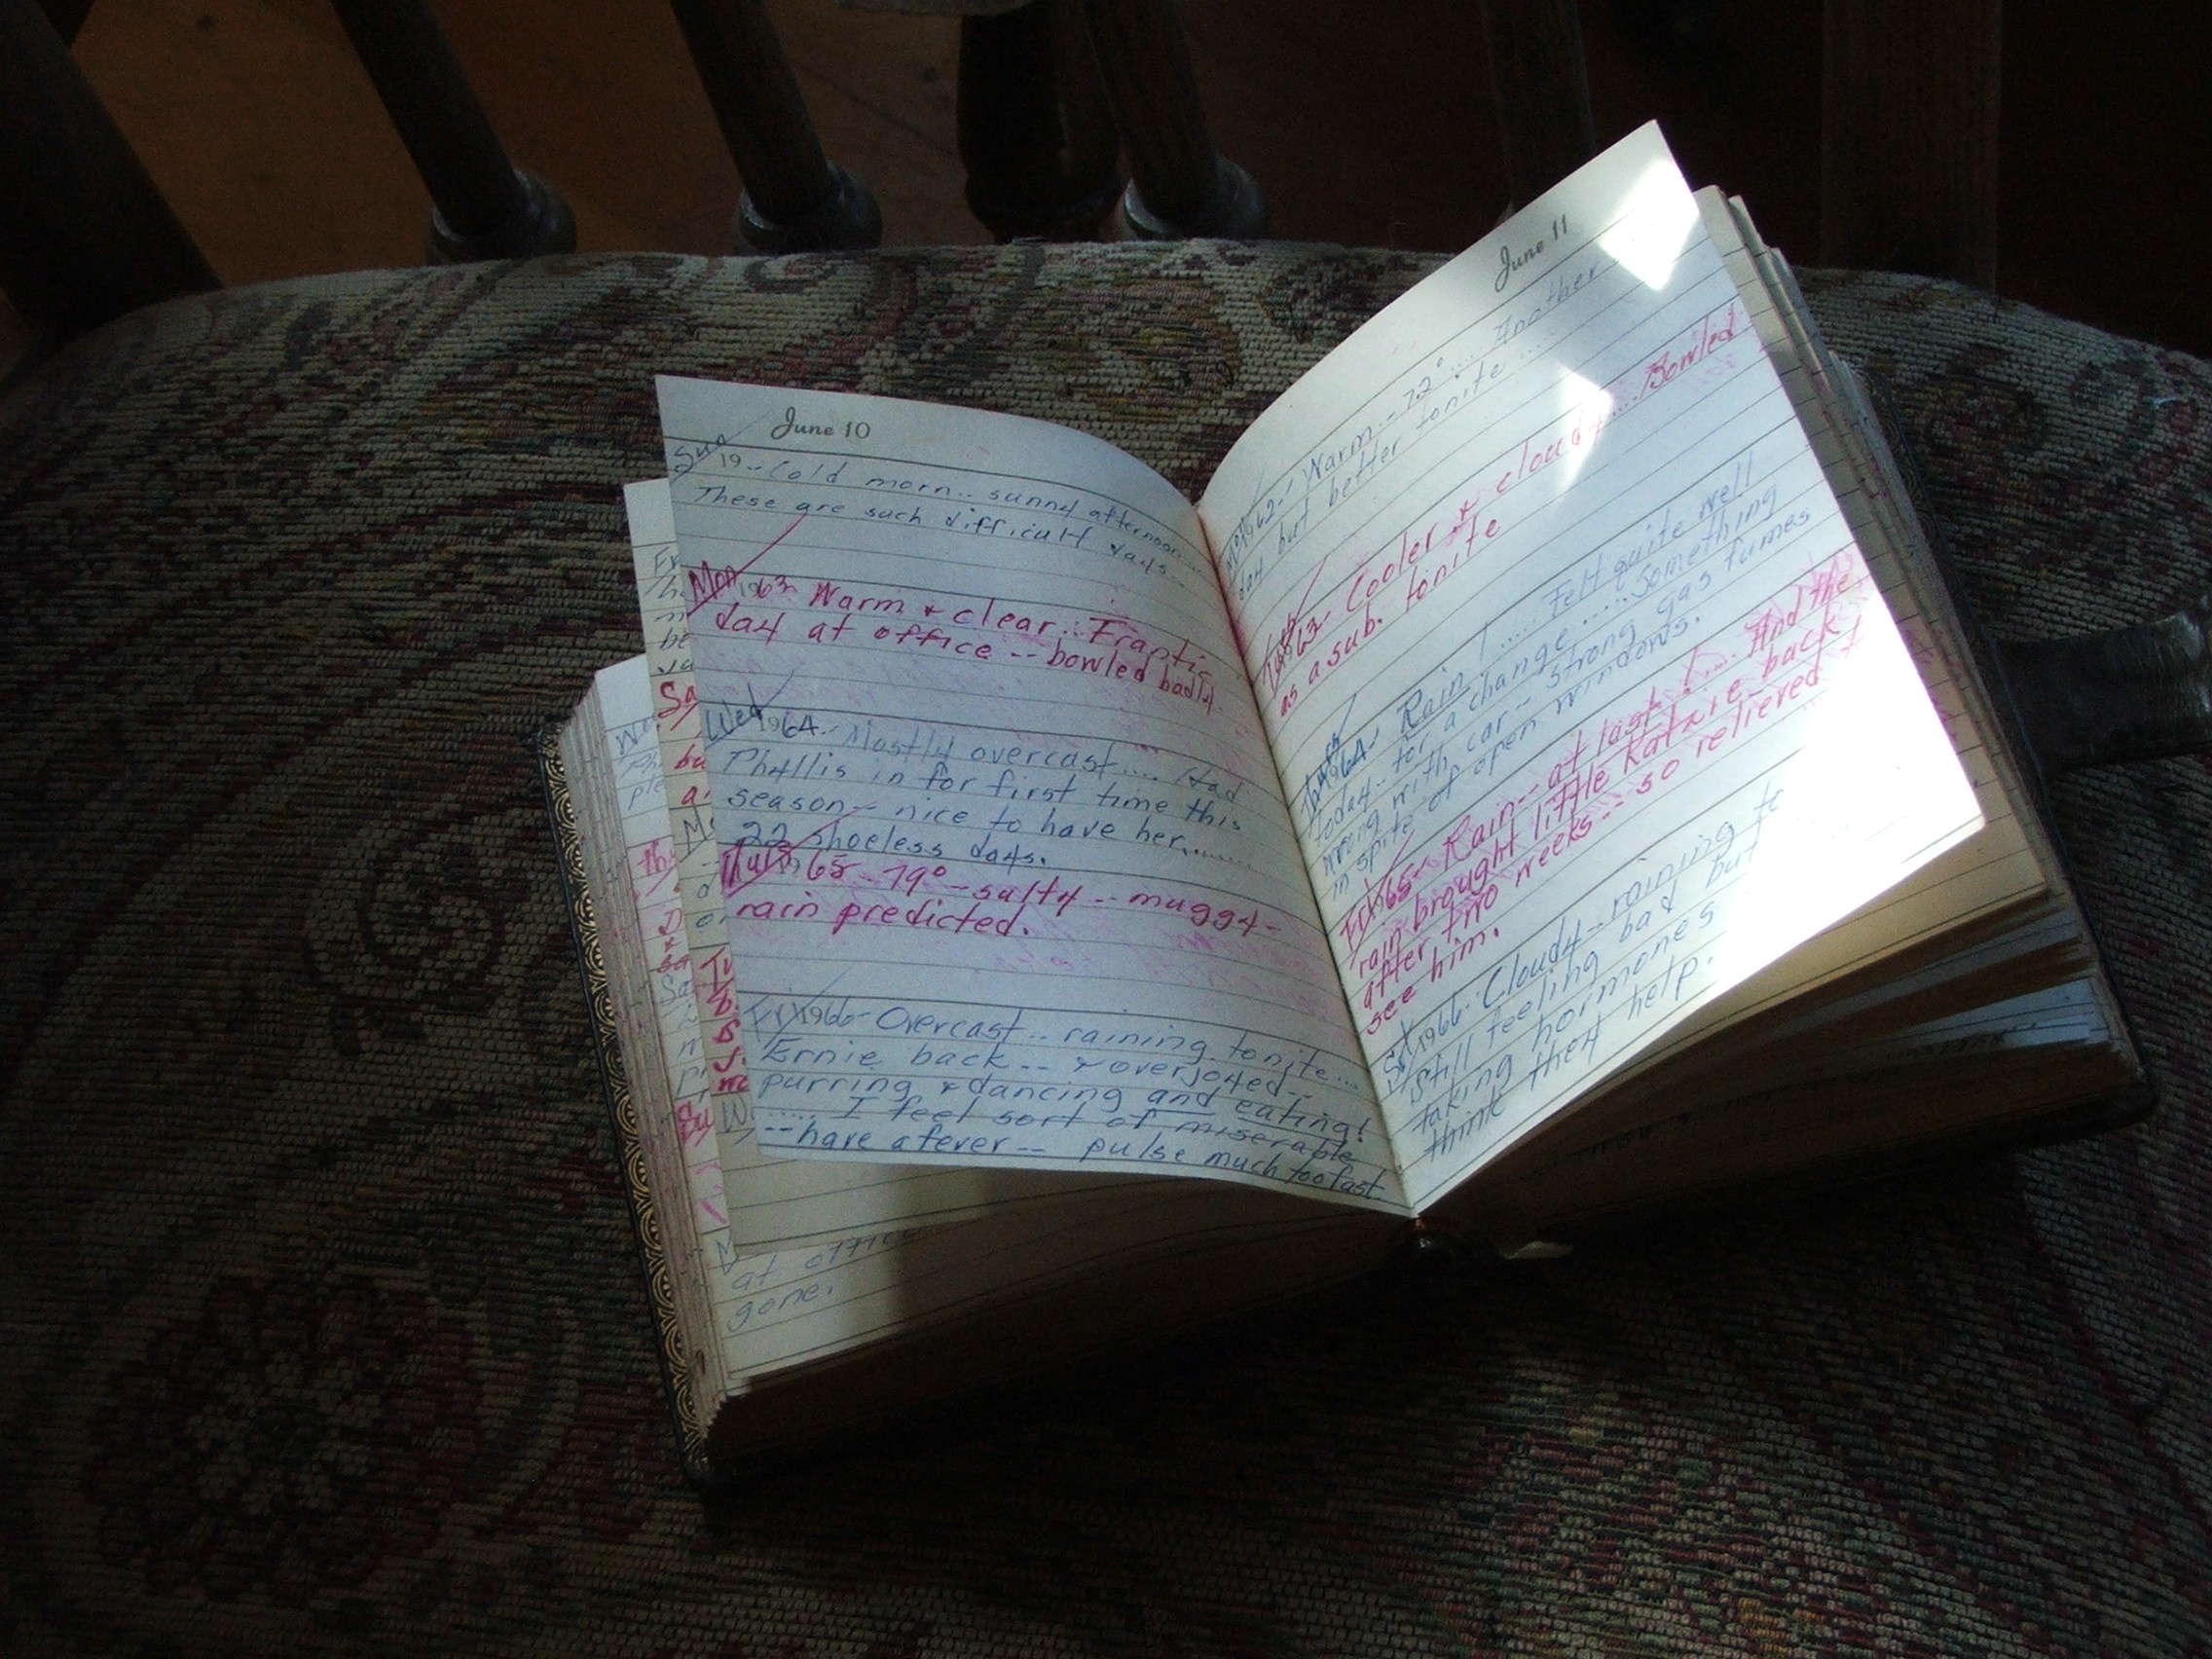 June 10
Sun
19-- Cold morn.. sunny afternoon.....
These are such difficult days...
Mon 1963- Warm & clear... Frantic
day at office -- bowled badly.
Wed 1964.. Mostly overcast.... Had
Phyllis in for first time this
season-- nice to have her.......
22 shoeless days.
Thurs 65- 79° - salty -- muggy -
rain predicted.
Fri 1966- Overcast.. raining tonite...
Ernie back -- & overjoyed -
purring & dancing and eating!
..... I feel sort of miserable
-- have a fever -- pulse much too fast.
June 11
Mon 1962-- Warm - 72°.... Another
day but better tonite .....
1963- Cooler & cloudy.... Bowled
as a sub. tonite
Thurs 1964- Rain! ..... Felt quite well
today.. for a change..... Something
wrong with car -- strong gas fumes
in spite of open windows.
Fri 65- Rain -- at last! .... And the
rain brought little Katzie back
after two weeks -- so relieved to
see him.
Sat 1966.. Cloudy -- raining to
still feeling bad but
taking hormones
think they help.
at office
gone.